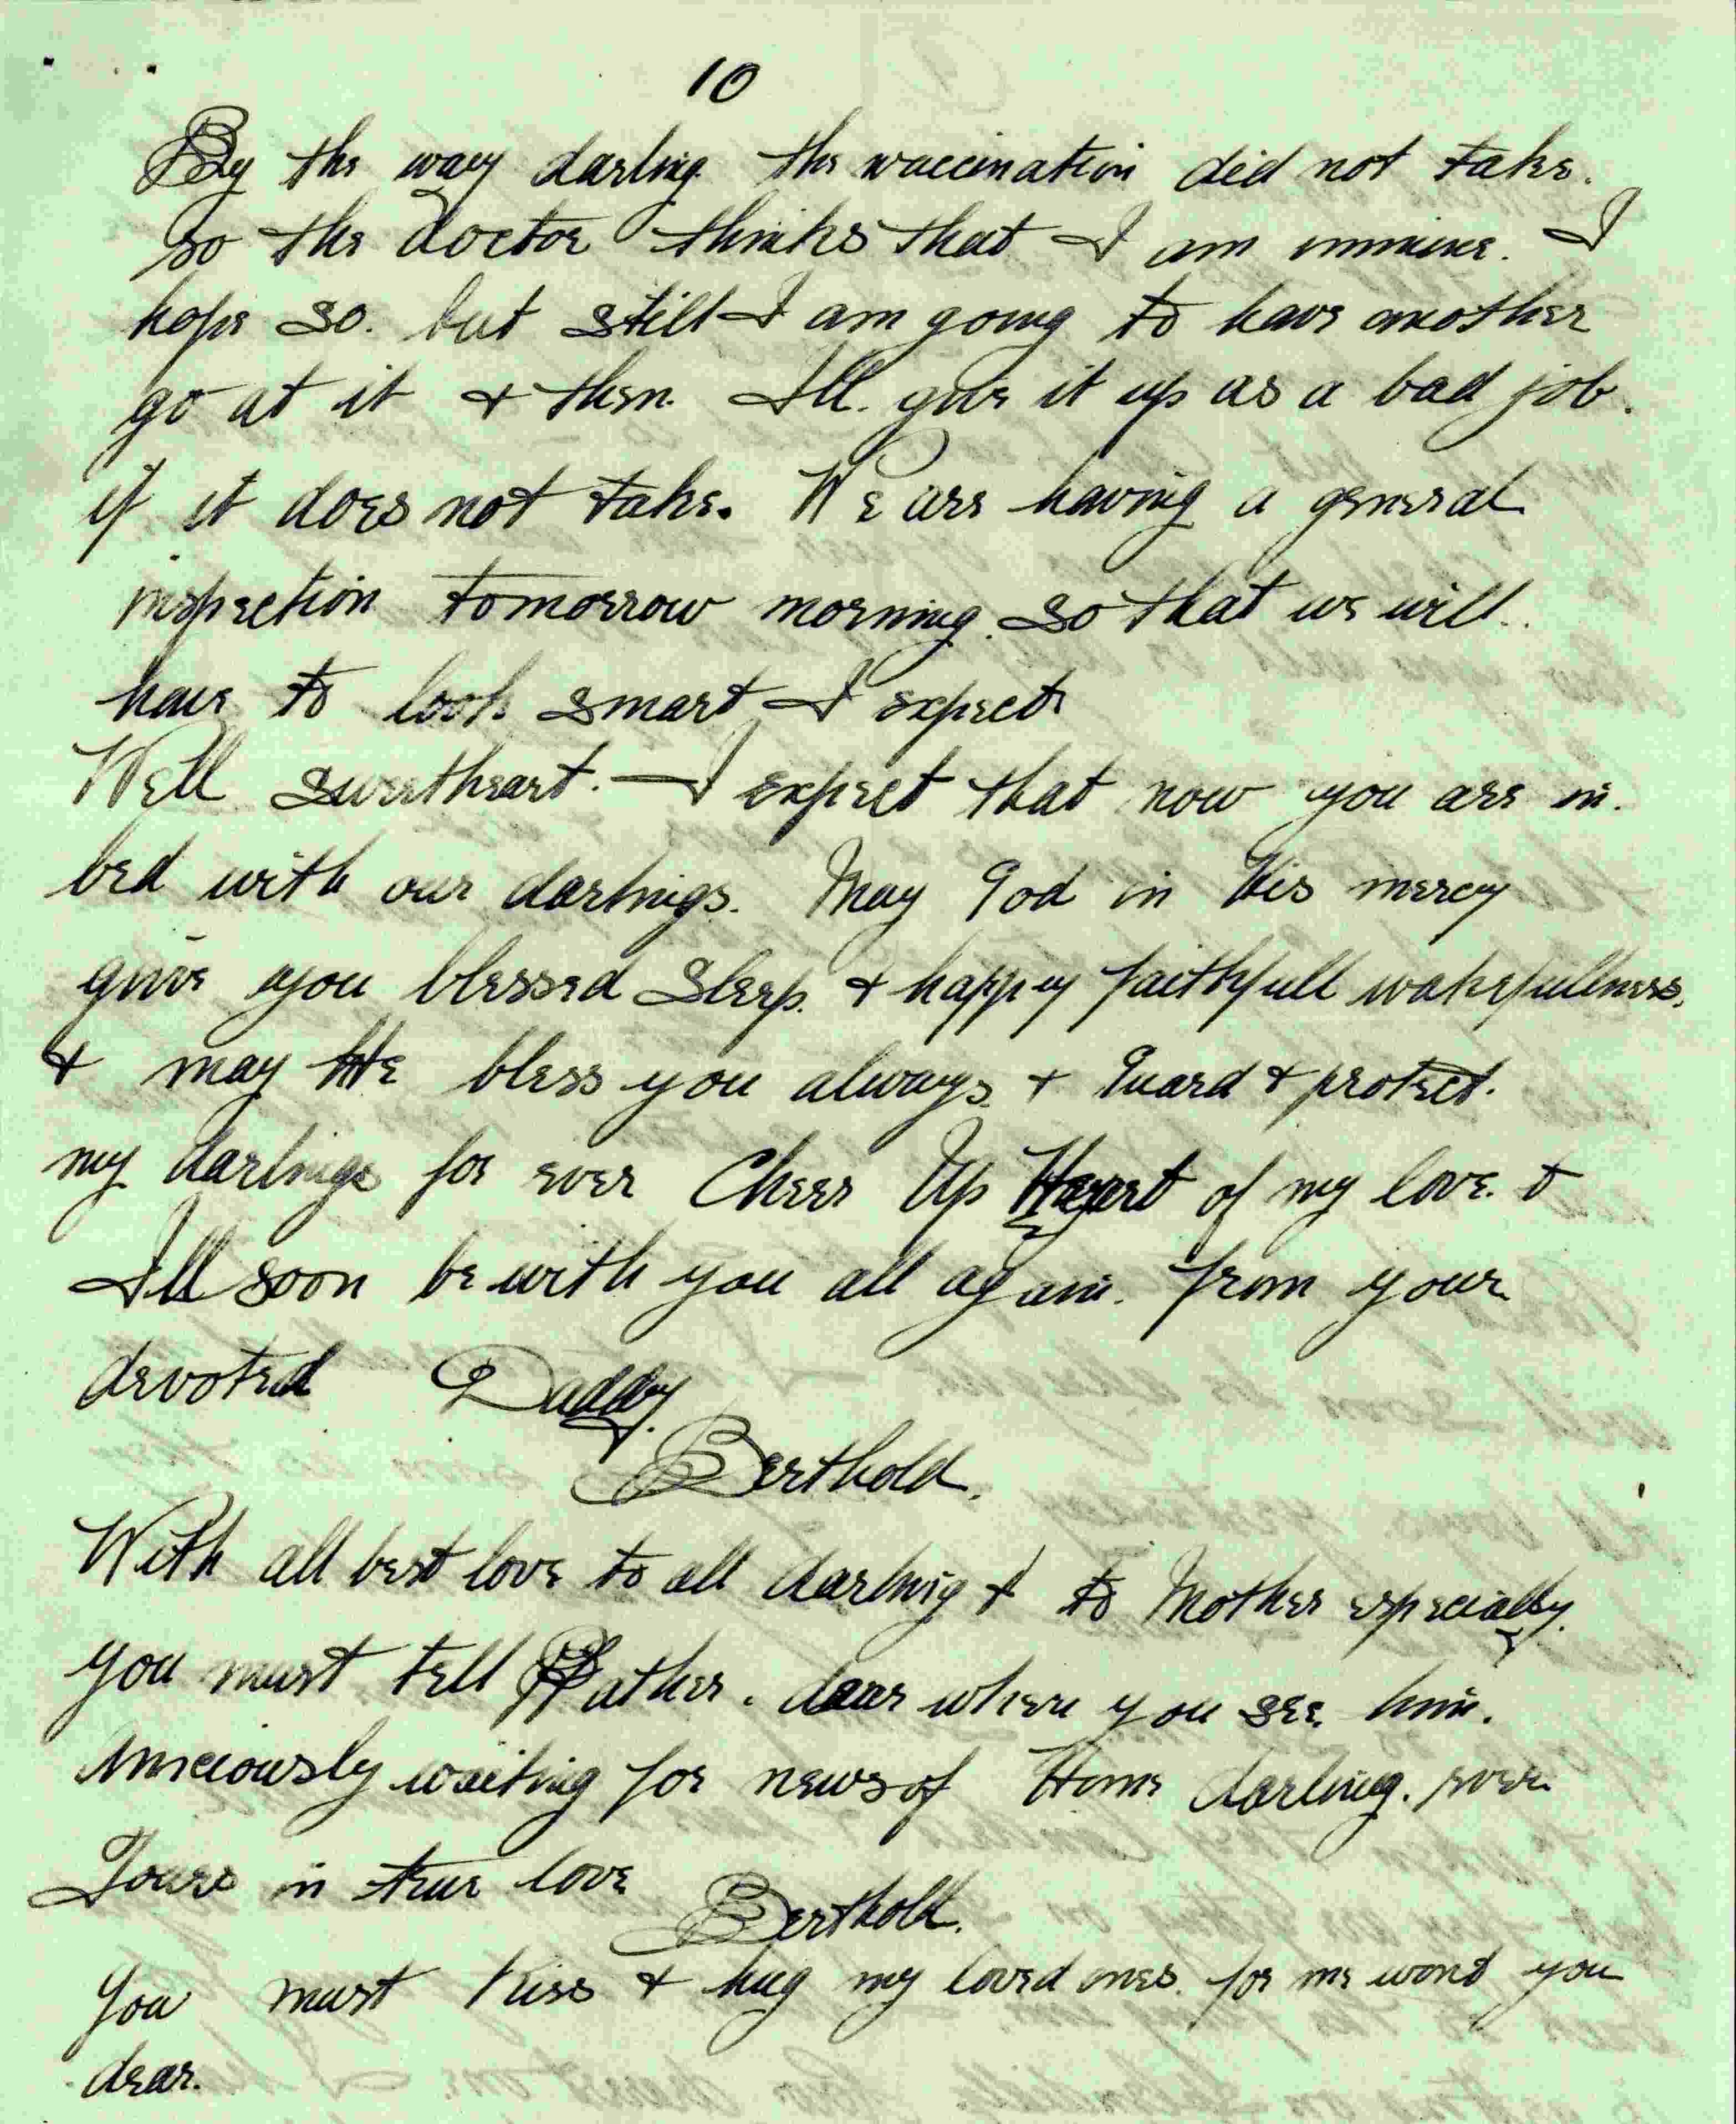 10
By the way darling the vaccination did not take.
so the doctor thinks that I am immune. I
hope so. but still I am going to have another
go at it & then. Ill. give it up as a bad job.
if it does not take. We are having a general
inspection tomorrow morning. so that we will.
have to look smart I expect
Well sweetheart. I expect that now you are in.
bed with our darlings. May God in His mercy
give you blessed sleep. & happy faithfull wakefullness.
& may He bless you always & Guard & protect.
my darlings for ever Cheer Up Heart of my love. &
Ill soon be with you all again. from your
devoted Daddy.
Berthold.
With all best love to all darling & to Mother especially.
you must tell Father. dear when you see him.
Anxiously waiting for news of Home darling. ever
Yours in true love
Berthold.
You must kiss & hug my loved ones. for me wont you
dear.